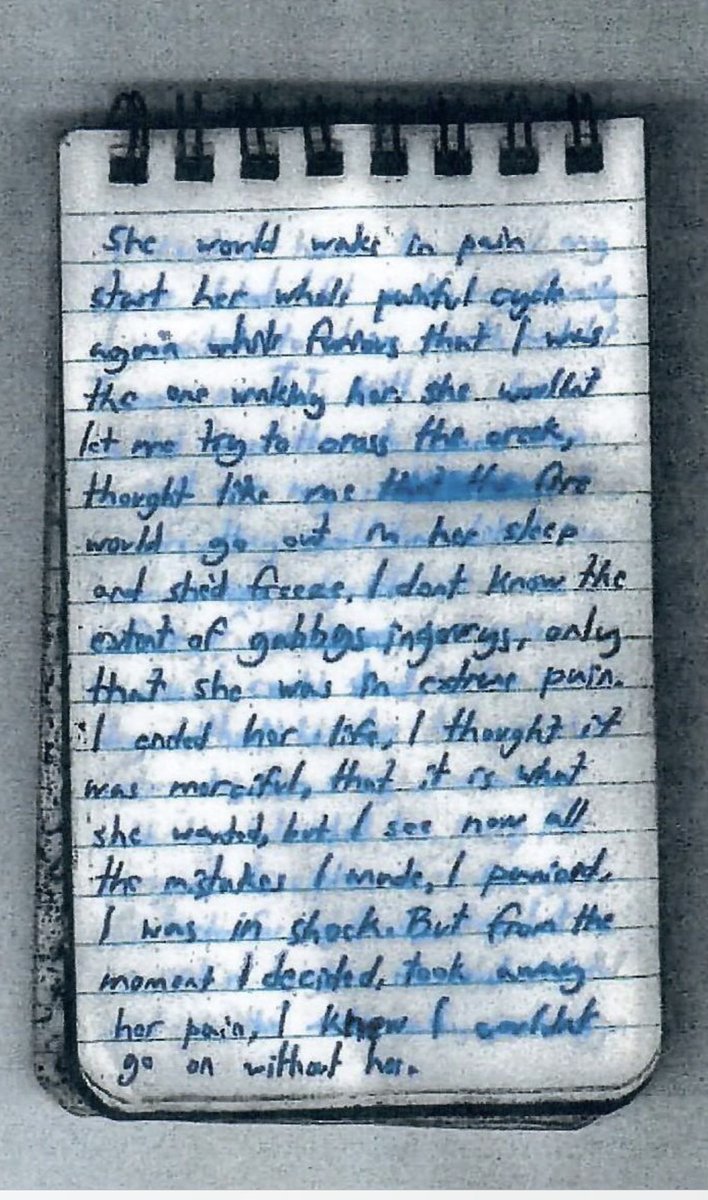 She would wake in pain
start her whole painful cycle
again while furious that I was
the one waking her. she wouldnt
let me try to cross the creek,
thought like me the fire
would go out in her sleep
and she'd freeze. I dont know the
extent of gabbys injurys, only
that she was in extreme pain.
I ended her life, I thought it
was merciful, that it is what
she wanted, but I see now all
the mistakes I made. I panicked.
I was in shock. But from the
moment I decided, took away
her pain, I knew I wouldnt
go on without her.